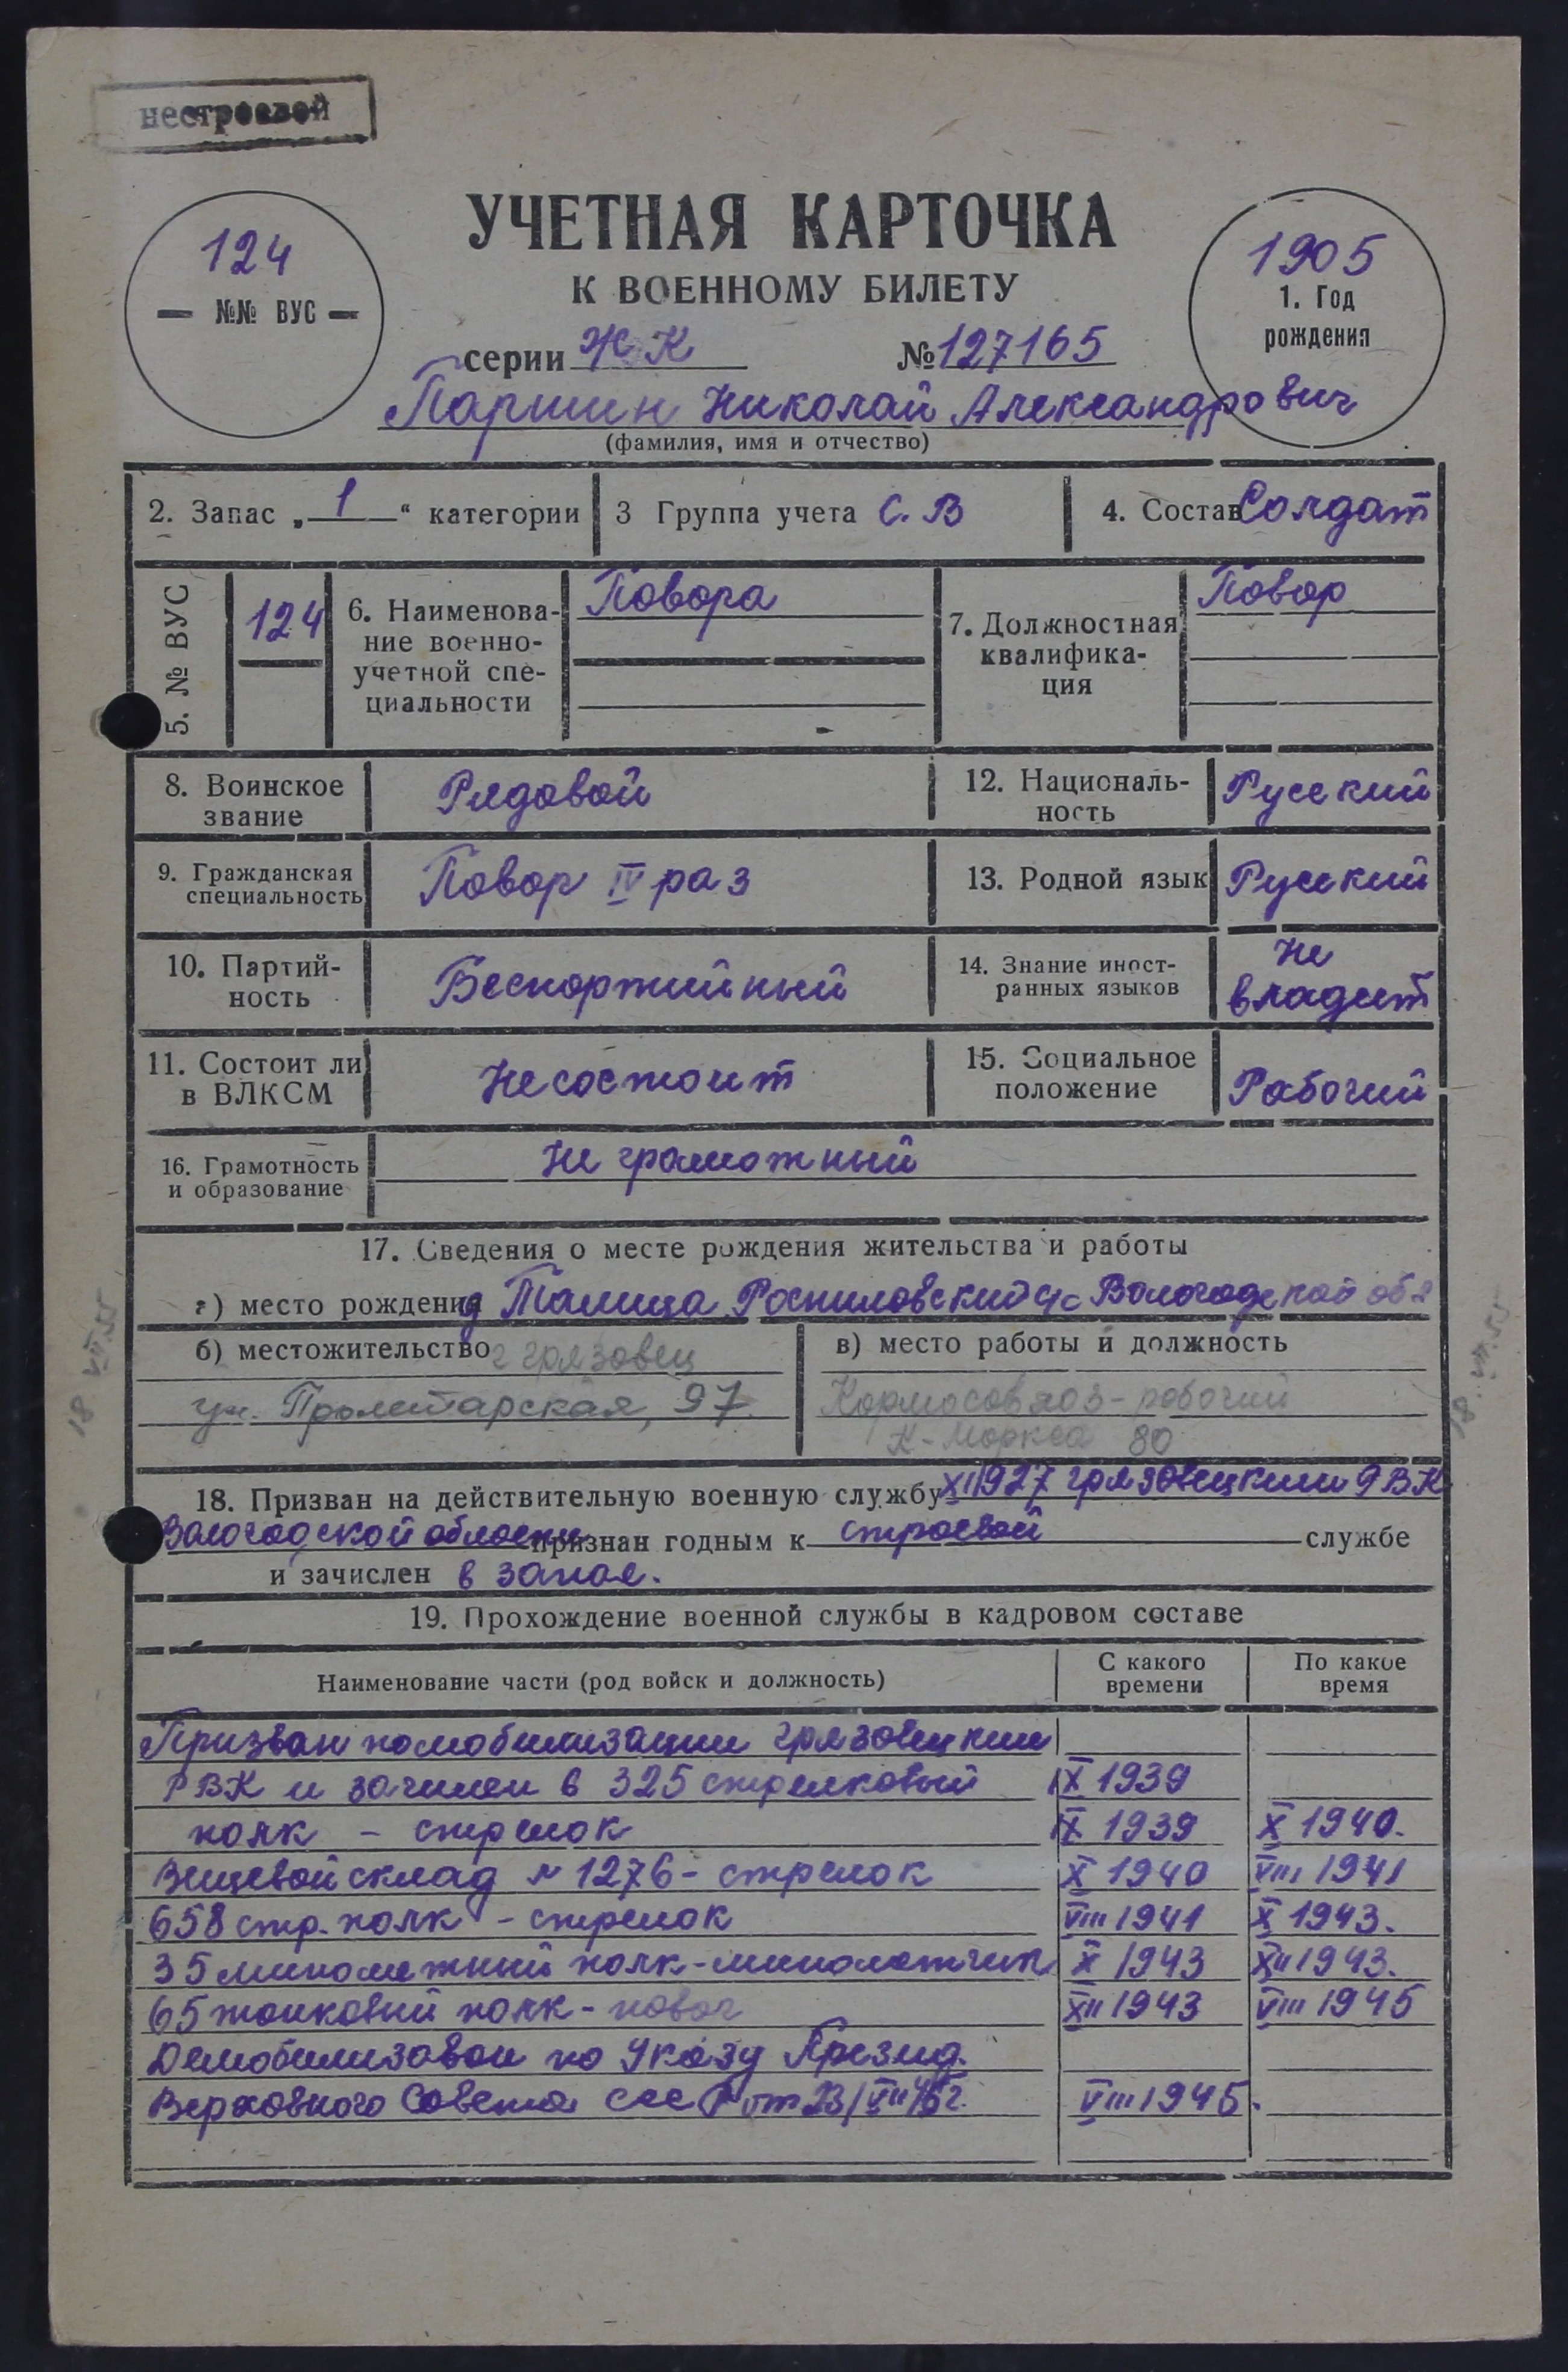 нестроевой
УЧЕТНАЯ КАРТОЧКА
К ВОЕННОМУ БИЛЕТУ
124
— №№ ВУС —
1905
1. Год
рождения
серии ЖК №127165
Паршин Николай Александрович
(фамилия, имя и отчество)
2. Запас „ 1 “ категории 3 Группа учета С. В 4. Состав Солдат
5. № ВУС 124
6. Наименова-
ние военно-
учетной спе-
циальности
Повора
7. Должностная
квалифика-
ция
Повор
8. Воинское
звание
Рядовой
12. Националь-
ность
Русский
9. Гражданская
специальность
Повор IV раз
13. Родной язык Русский
10. Партий-
ность
Беспартийный
14. Знание иност-
ранных языков
Не
владеет
11. Состоит ли
в ВЛКСМ
Не состоит
15. Социальное
положение
Рабочий
16. Грамотность
и образование
Не грамотный
17. Сведения о месте рождения жительства и работы
а) место рождения д Талица Ростиловский с/с Вологодской обл
б) местожительство г грязовец
ул. Пролетарская, 97
в) место работы и должность
рабочий
К-Маркса 80
18 VII 55
18. VII. 55
18. Призван на действительную военную службу XI 1927 грязовецким РВК
Вологодской области признан годным к строевой службе
и зачислен в запас.
19. Прохождение военной службы в кадровом составе
Наименование части (род войск и должность)
С какого
времени
По какое
время
Призван по мобилизации грязовецким
РВК и зачислен в 325 стрелковый IX 1939
полк – стрелок IX 1939 X 1940.
Вещевой склад № 1276 – стрелок X 1940 VIII 1941
658 стр. полк – стрелок VIII 1941 X 1943.
35 минометный полк – минометчик X 1943 XII 1943.
65 танковый полк – повар XII 1943 VIII 1945
Демобилизован по Указу Презид.
Верховного Совета СССР от 23/VI 45г. VIII 1945.